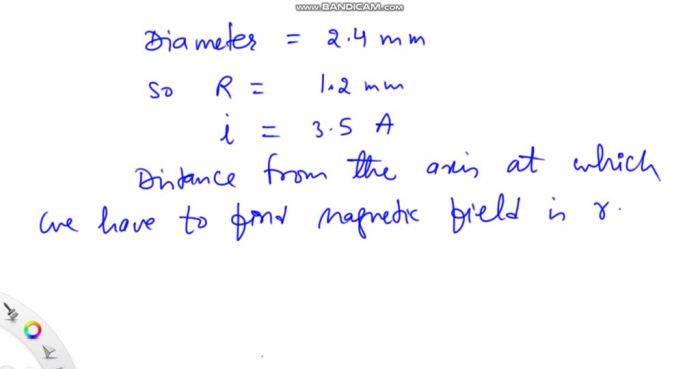 www.BANDICAM.com
Diameter = 2.4 mm
so R = 1.2 mm
i = 3.5 A
Distance from the axis at which
we have to find magnetic field is r.